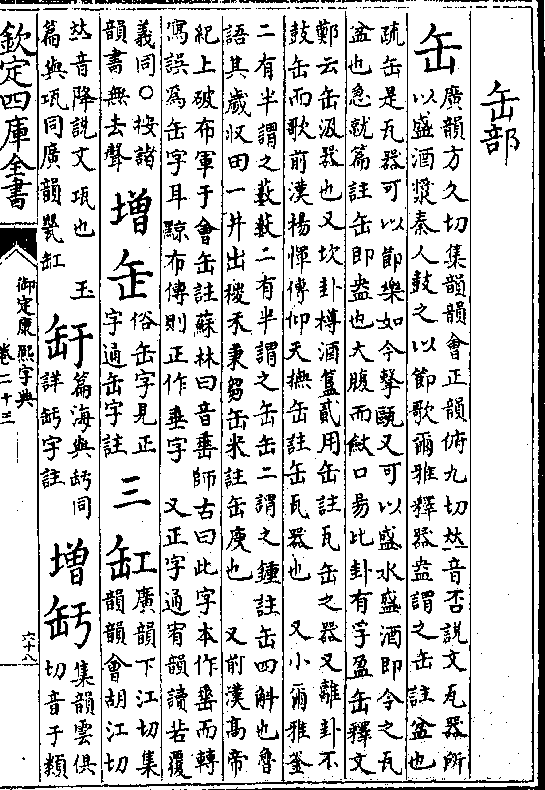 缶部
缶 廣韻方久切集韻韻會正韻俯九切𠀤音否說文瓦器所
以盛酒漿秦人鼓之以節歌爾雅釋器盎謂之缶註盆也
疏缶是瓦器可以節樂如今擊甌又可以盛水盛酒即今之瓦
盆也急就篇註缶即盎也大腹而斂口易比卦有孚盈缶釋文
鄭云缶汲器也又坎卦樽酒簋貳用缶註瓦缶之器又離卦不
鼓缶而歌前漢楊惲傳仰天撫缶註缶瓦器也 又小爾雅釜
二有半謂之藪藪二有半謂之缶缶二謂之鍾註缶四斛也魯
語其歲收田一井出稷禾秉芻缶米註缶庾也 又前漢高帝
紀上破布軍于會缶註蘇林曰音垂師古曰此字本作垂而轉
寫誤為缶字耳黥布傳則正作垂字 又正字通宥韻讀若覆
義同○按諸
韻書無去聲
增
俗缶字見正
字通缶字註
三
缸 廣韻下江切集
韻韻會胡江切
𠀤音降說文瓨也 玉
篇與瓨同廣韻甖缸
篇海與 同
詳 字註
增
集韻雲俱
切音于類
欽定四庫全書
御定康熙字典
卷二十三
六十八